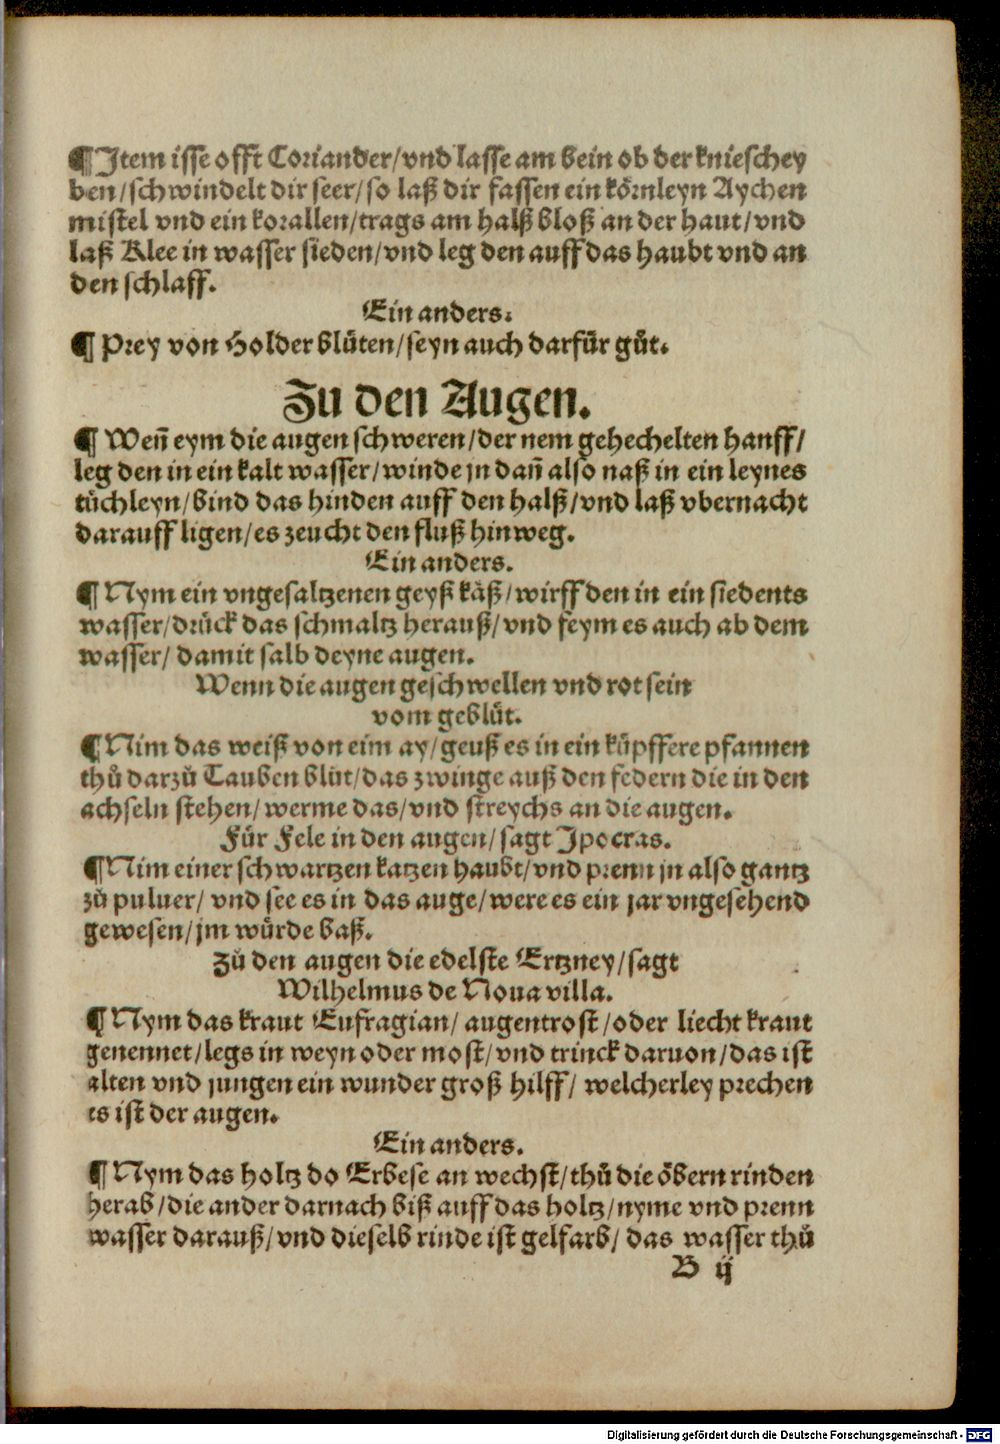 ¶ Item isse offt Coriander/vnd lasse am bein ob der knieschey
ben/schwindelt dir seer/so laß dir fassen ein körnleyn Aychen
mistel vnd ein korallen/trags am halß bloß an der haut/vnd
laß Klee in wasser sieden/vnd leg den auff das haubt vnd an
den schlaff.
Ein anders.
¶ Prey von Holder blůten/seyn auch darfür gůt.
Zu den Augen.
¶ Weñ eym die augen schweren/der nem gehechelten hanff/
leg den in ein kalt wasser/winde jn dañ also naß in ein leynes
tůchleyn/bind das hinden auff den halß/vnd laß vbernacht
darauff ligen/es zeucht den fluß hinweg.
Ein anders.
¶ Nym ein vngesaltzenen geyß käß/wirff den in ein siedents
wasser/drück das schmaltz herauß/vnd feym es auch ab dem
wasser/ damit salb deyne augen.
Wenn die augen geschwellen vnd rot sein
vom geblůt.
¶ Nim das weiß von eim ay/geuß es in ein küpffere pfannen
thů darzů Tauben blůt/das zwinge auß den federn die in den
achseln stehen/werme das/vnd streychs an die augen.
Für Fele in den augen/sagt Ipocras.
¶ Nim einer schwartzen katzen haubt/vnd prenn jn also gantz
zů puluer/ vnd see es in das auge/were es ein jar vngesehend
gewesen/jm würde baß.
Zů den augen die edelste Ertzney/sagt
Wilhelmus de Noua villa.
¶ Nym das kraut Eufragian/ augentrost/oder liecht kraut
genennet/legs in weyn oder most/vnd trinck daruon/das ist
alten vnd jungen ein wunder groß hilff/ welcherley prechen
es ist der augen.
Ein anders.
¶ Nym das holtz do Erbese an wechst/thů die öbern rinden
herab/die ander darnach biß auff das holtz/nyme vnd prenn
wasser darauß/vnd dieselb rinde ist gelfarb/ das wasser thů
B ij
Digitalisierung gefördert durch die Deutsche Forschungsgemeinschaft - DFG